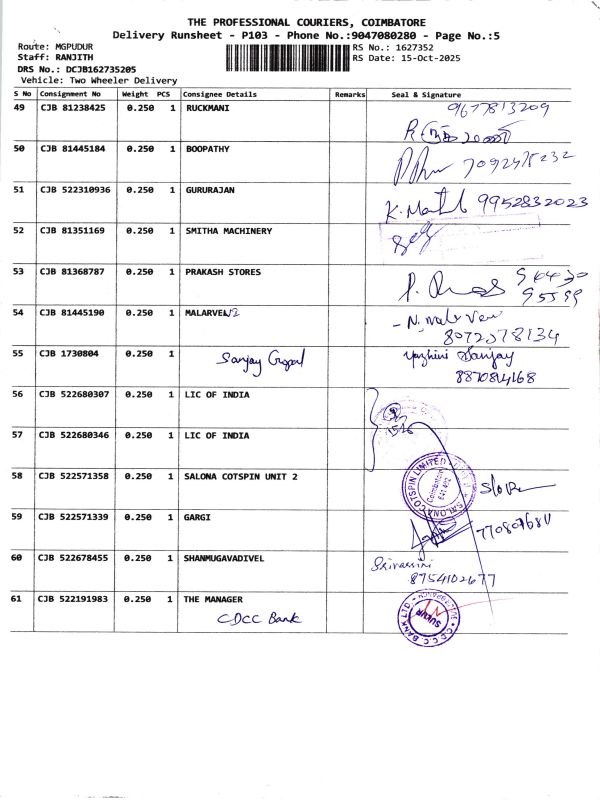 THE PROFESSIONAL COURIERS, COIMBATORE
Delivery Runsheet - P103 - Phone No.:9047080280 - Page No.:5
Route: MGPUDUR RS No.: 1627352
Staff: RANJITH RS Date: 15-Oct-2025
DRS No.: DCJB162735205
Vehicle: Two Wheeler Delivery
S No Consignment No Weight PCS Consignee Details Remarks Seal & Signature
49 CJB 81238425 0.250 1 RUCKMANI 9677813209
50 CJB 81445184 0.250 1 BOOPATHY 7092475232
51 CJB 522310936 0.250 1 GURURAJAN 9952832023
52 CJB 81351169 0.250 1 SMITHA MACHINERY
53 CJB 81368787 0.250 1 PRAKASH STORES
54 CJB 81445190 0.250 1 MALARVEN
8072578134
55 CJB 1730804 0.250 1 Sanjay Gopal Yazhini Sanjay
56 CJB 522680307 0.250 1 LIC OF INDIA
57 CJB 522680346 0.250 1 LIC OF INDIA
58 CJB 522571358 0.250 1 SALONA COTSPIN UNIT 2
59 CJB 522571339 0.250 1 GARGI
60 CJB 522678455 0.250 1 SHANMUGAVADIVEL
8754102677
61 CJB 522191983 0.250 1 THE MANAGER
CDCC Bank SULUR